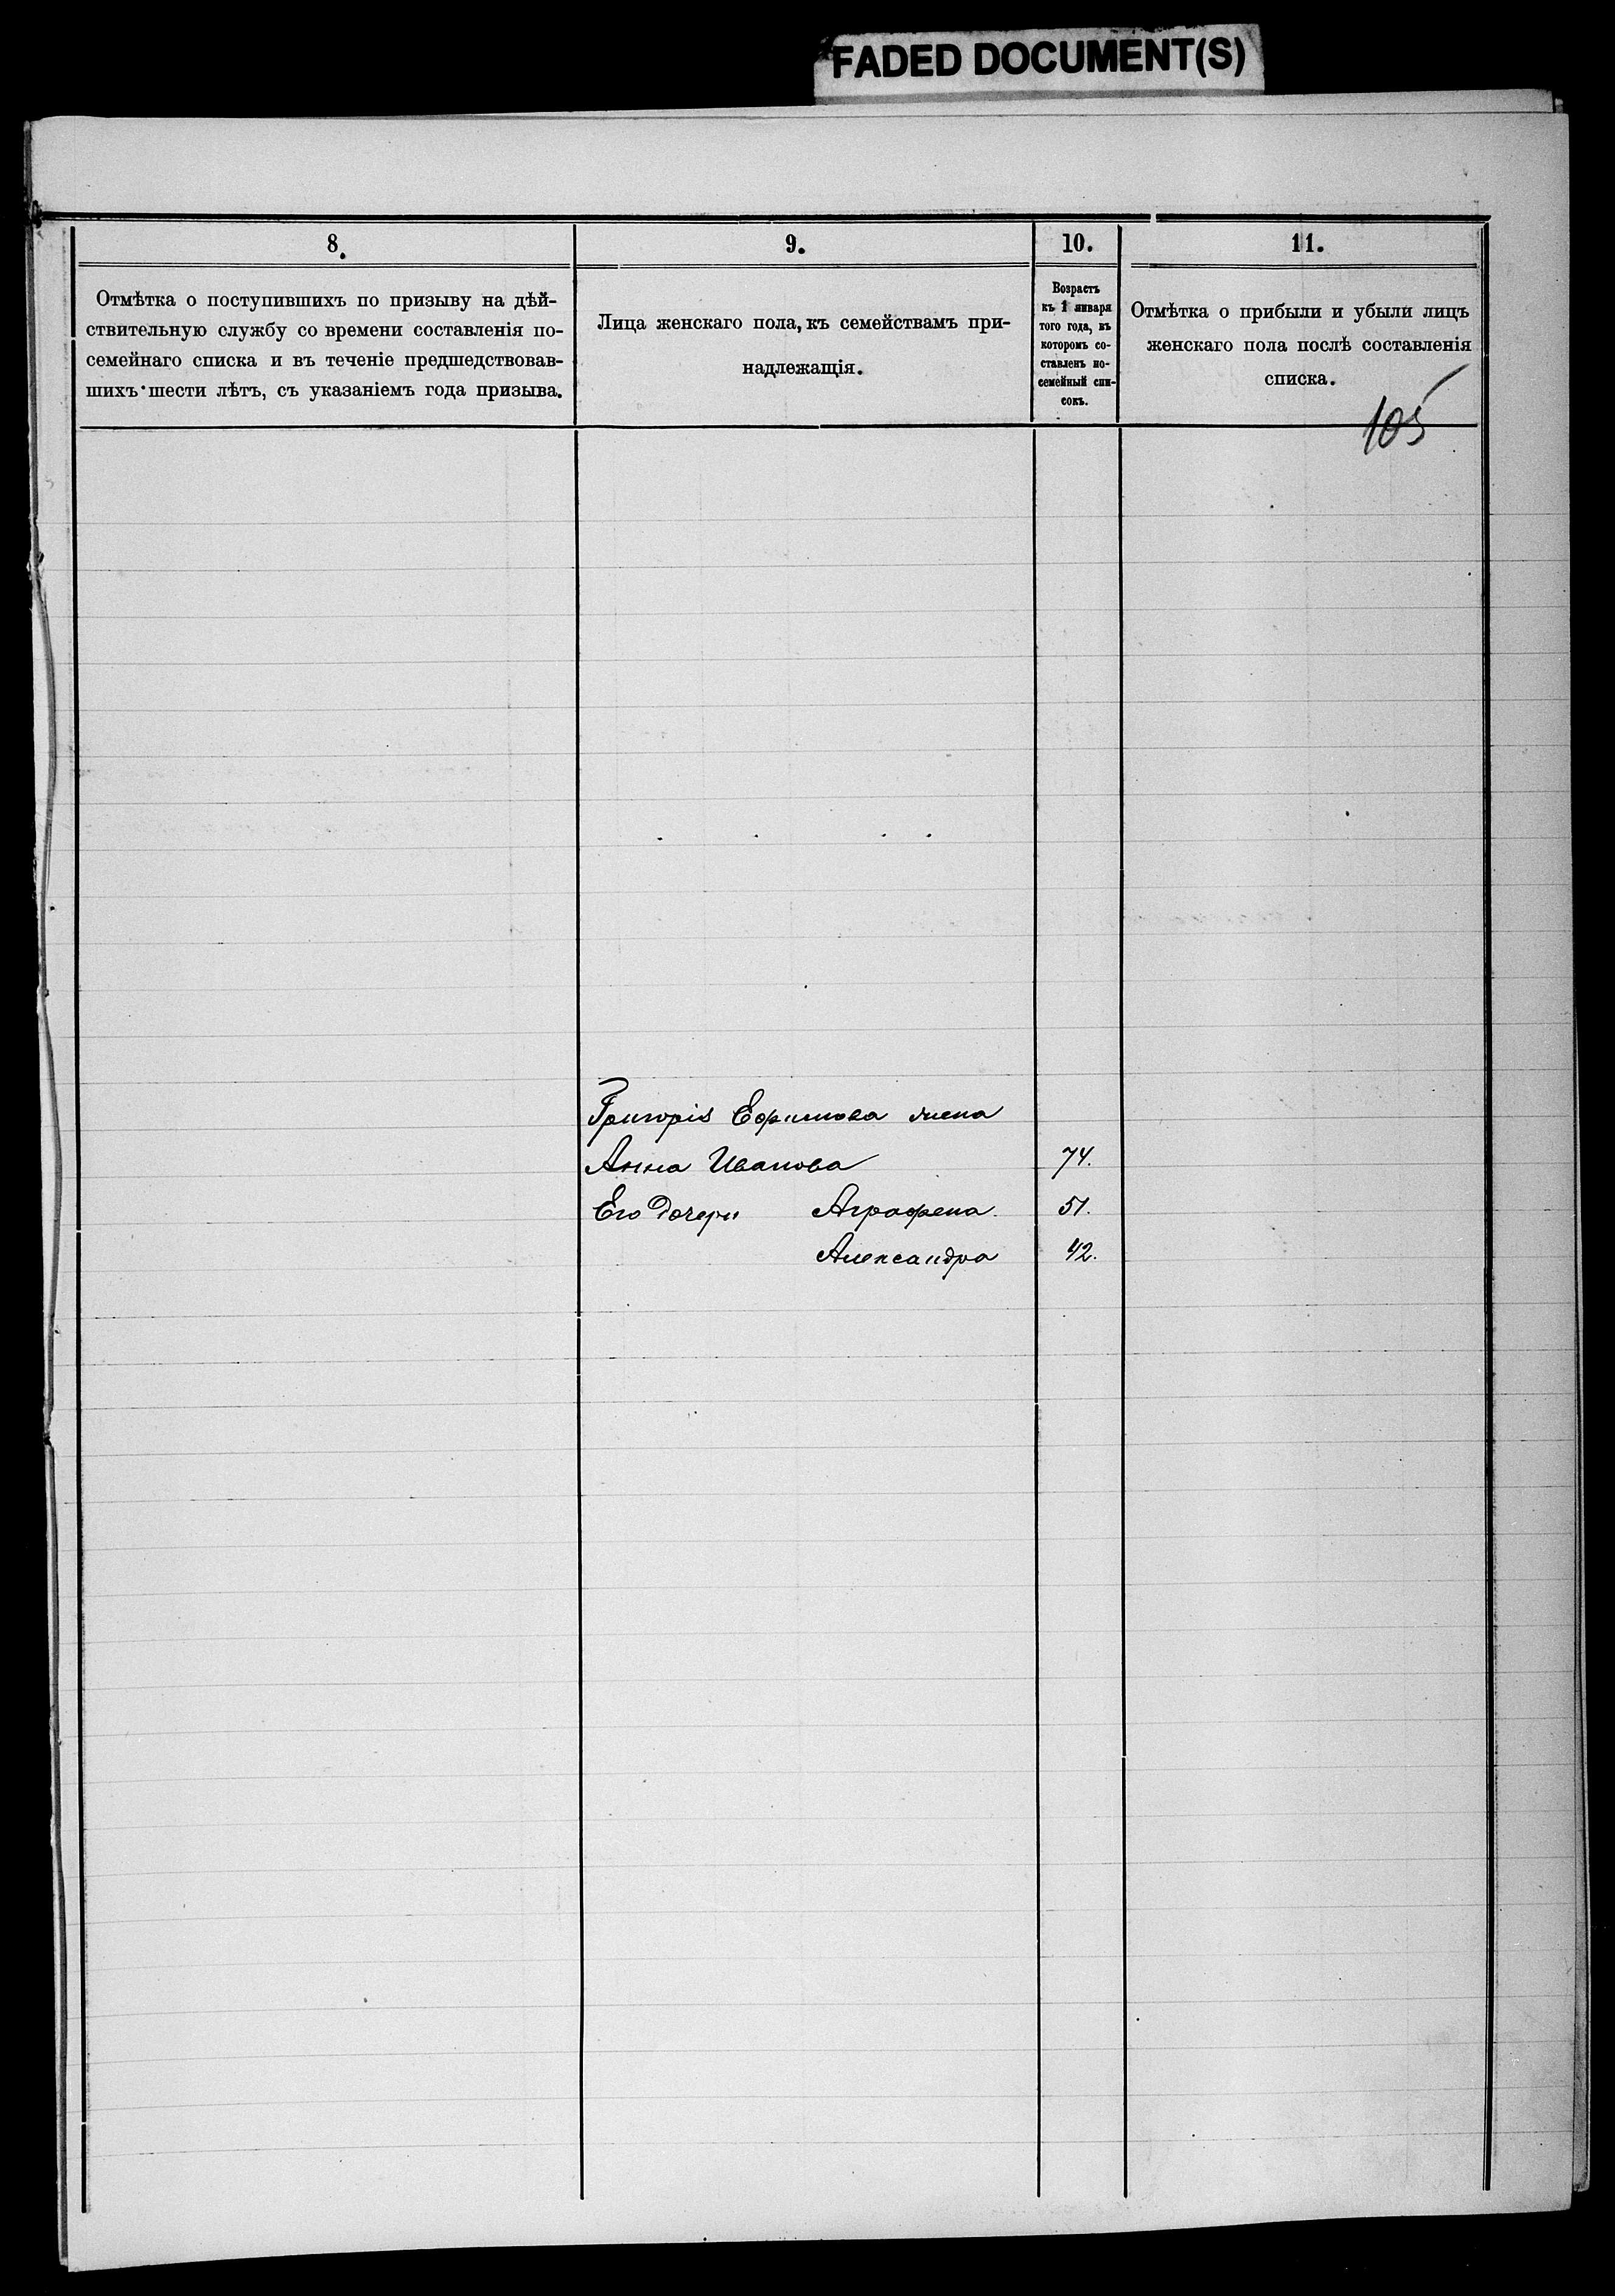 FADED DOCUMENT(S)
8.
Отмѣтка о поступившихъ по призыву на дѣй-
ствительную службу со времени составленія по-
семейнаго списка и въ теченіе предшедствовав-
шихъ шести лѣтъ, съ указаніемъ года призыва.
9.
Лица женскаго пола, къ семействамъ при-
надлежащія.
10.
Возрастъ
къ 1 января
того года, въ
которомъ со-
ставленъ по-
семейный спи-
сокъ.
11.
Отмѣтка о прибыли и убыли лицъ
женскаго пола послѣ составленія
списка.
105
Григорія Ефимова жена
Анна Иванова 74.
Его дочери Аграфена. 51.
Александра 42.